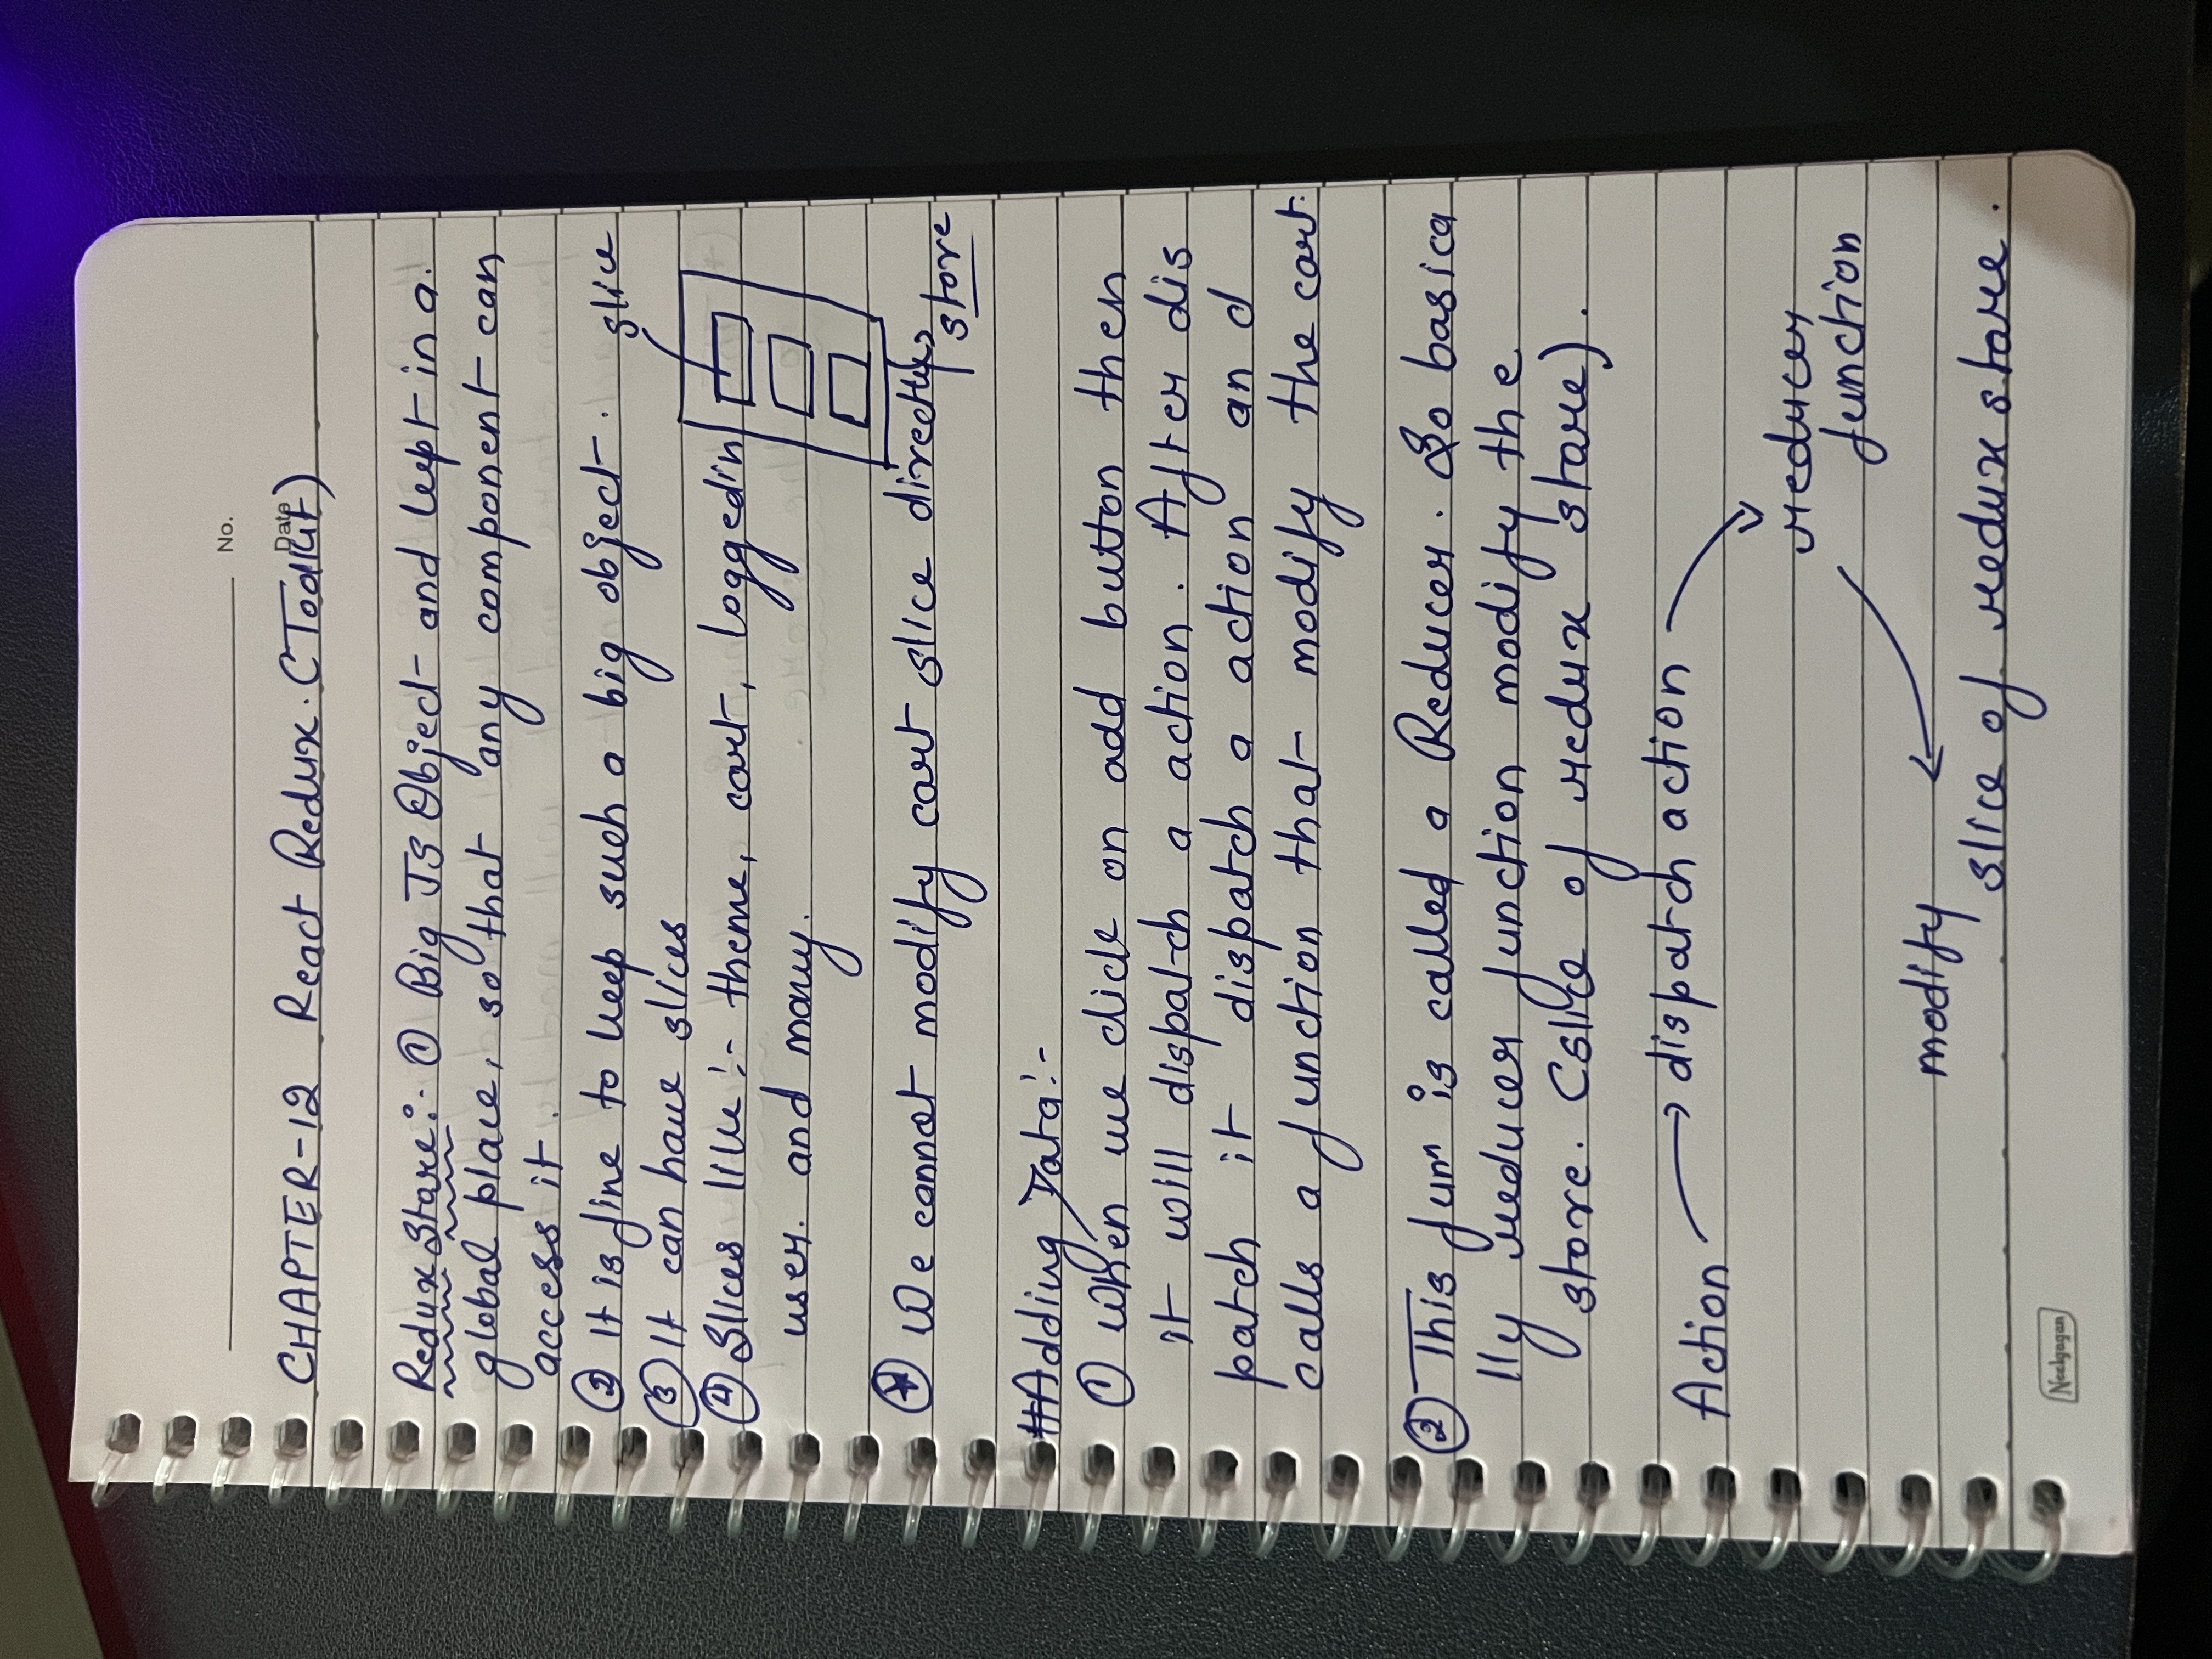 No.
Date
CHAPTER-12 React Redux. (Toolkit)
Redux Store:- ① Big JS Object and kept in a.
global place, so that any component can
access it.
② It is fine to keep such a big object.
slice
③ It can have slices
④ Slices like:- theme, cart, loggedin
user. and many.
We cannot modify cart slice directly
store
#Adding Data:-
① When we click on add button then
it will dispatch a action. After dis
patch it dispatch a action and
calls a function that modify the cart.
② This funn is called a Reducer. So basica
lly reducer function modify the
store. (slice of redux store).
Action → dispatch action
reducer
function
modify
slice of redux store.
Neelgagan